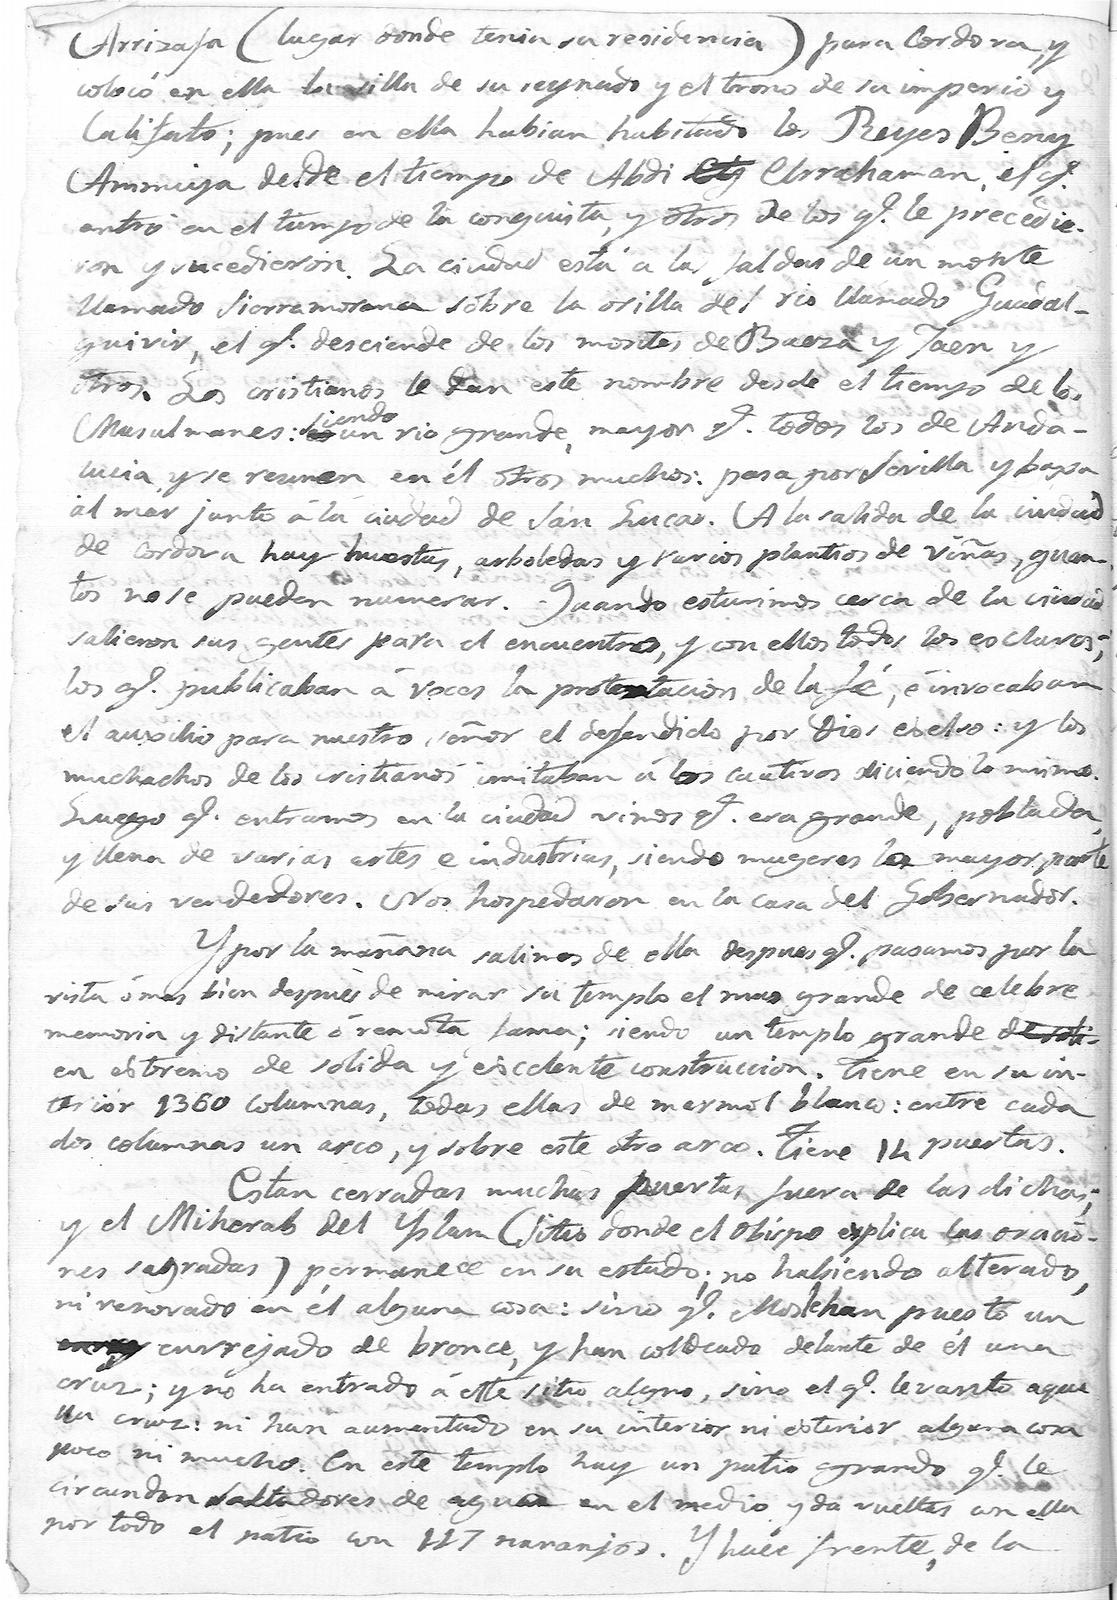 Arrizafa (lugar donde tenia su residencia) para Cordova, y
colocó en ella la silla de su reynado y el trono de su imperio y
Califato; pues en ella habian habitado los Reyes Beny
Ammiya desde el tiempo de Abdi Errahaman, el q.
entró en el tiempo de la conquista, y otros de los q. le precedie-
ron y sucedieron. La ciudad está a las faldas de un monte
llamado Sierramorena sobre la orilla del rio llamado Guadal-
quivir, el q. desciende de los montes de Baeza y Jaen y
otros. Los cristianos le dan este nombre desde el tiempo de los
Musulmanes: siendo un rio grande, mayor q. todos los de Anda-
lucia, y se reunen en él otros muchos: pasa por Sevilla y baxa
al mar junto á la ciudad de San Lucar. A la salida de la ciudad
de Cordova hay huertas, arboledas y varios plantios de viñas, quan-
tos no se pueden numerar. Quando estuvimos cerca de la ciudad
salieron sus gentes para el encuentro, y con ellos todos los esclavos;
los q. publicaban á voces la protestacion de la fé, é invocaban
el auxilio para nuestro señor el defendido por Dios excelso: y los
muchachos de los cristianos imitaban á los cautivos diciendo lo mismo.
Luego q. entramos en la ciudad vimos q. era grande, poblada,
y llena de varias artes e industrias, siendo mugeres la mayor parte
de sus vendedores. Nos hospedaron en la casa del Gobernador.
Y por la mañana salimos de ella despues q. pasamos por la
vista ó mas bien despues de mirar su templo el mas grande de celebre
memoria y distante ó remota fama; siendo un templo grande de soli-
en extremo de solida y excelente construccion. Tiene en su in-
terior 1360 columnas, todas ellas de marmol blanco: entre cada
dos columnas un arco, y sobre este otro arco. Tiene 14 puertas.
Estan cerradas muchas puertas fuera de las dichas;
y el Miherab del Yslam (sitio donde el Obispo explica las oracio-
nes sagradas) permanece en su estado; no habiendo alterado,
ni renovado en él alguna cosa: sino q. han puesto un
enrejado de bronce, y han colocado delante de él una
cruz; y no ha entrado á este sitio alguno, sino el q. levantó aque
lla cruz: ni han aumentado en su interior ni exterior alguna cosa
poco ni mucho. En este templo hay un patio grande q. le
circundan saltadores de agua en el medio y da vueltas con ella
por todo el patio con 117 naranjos. Y hace frente, de la